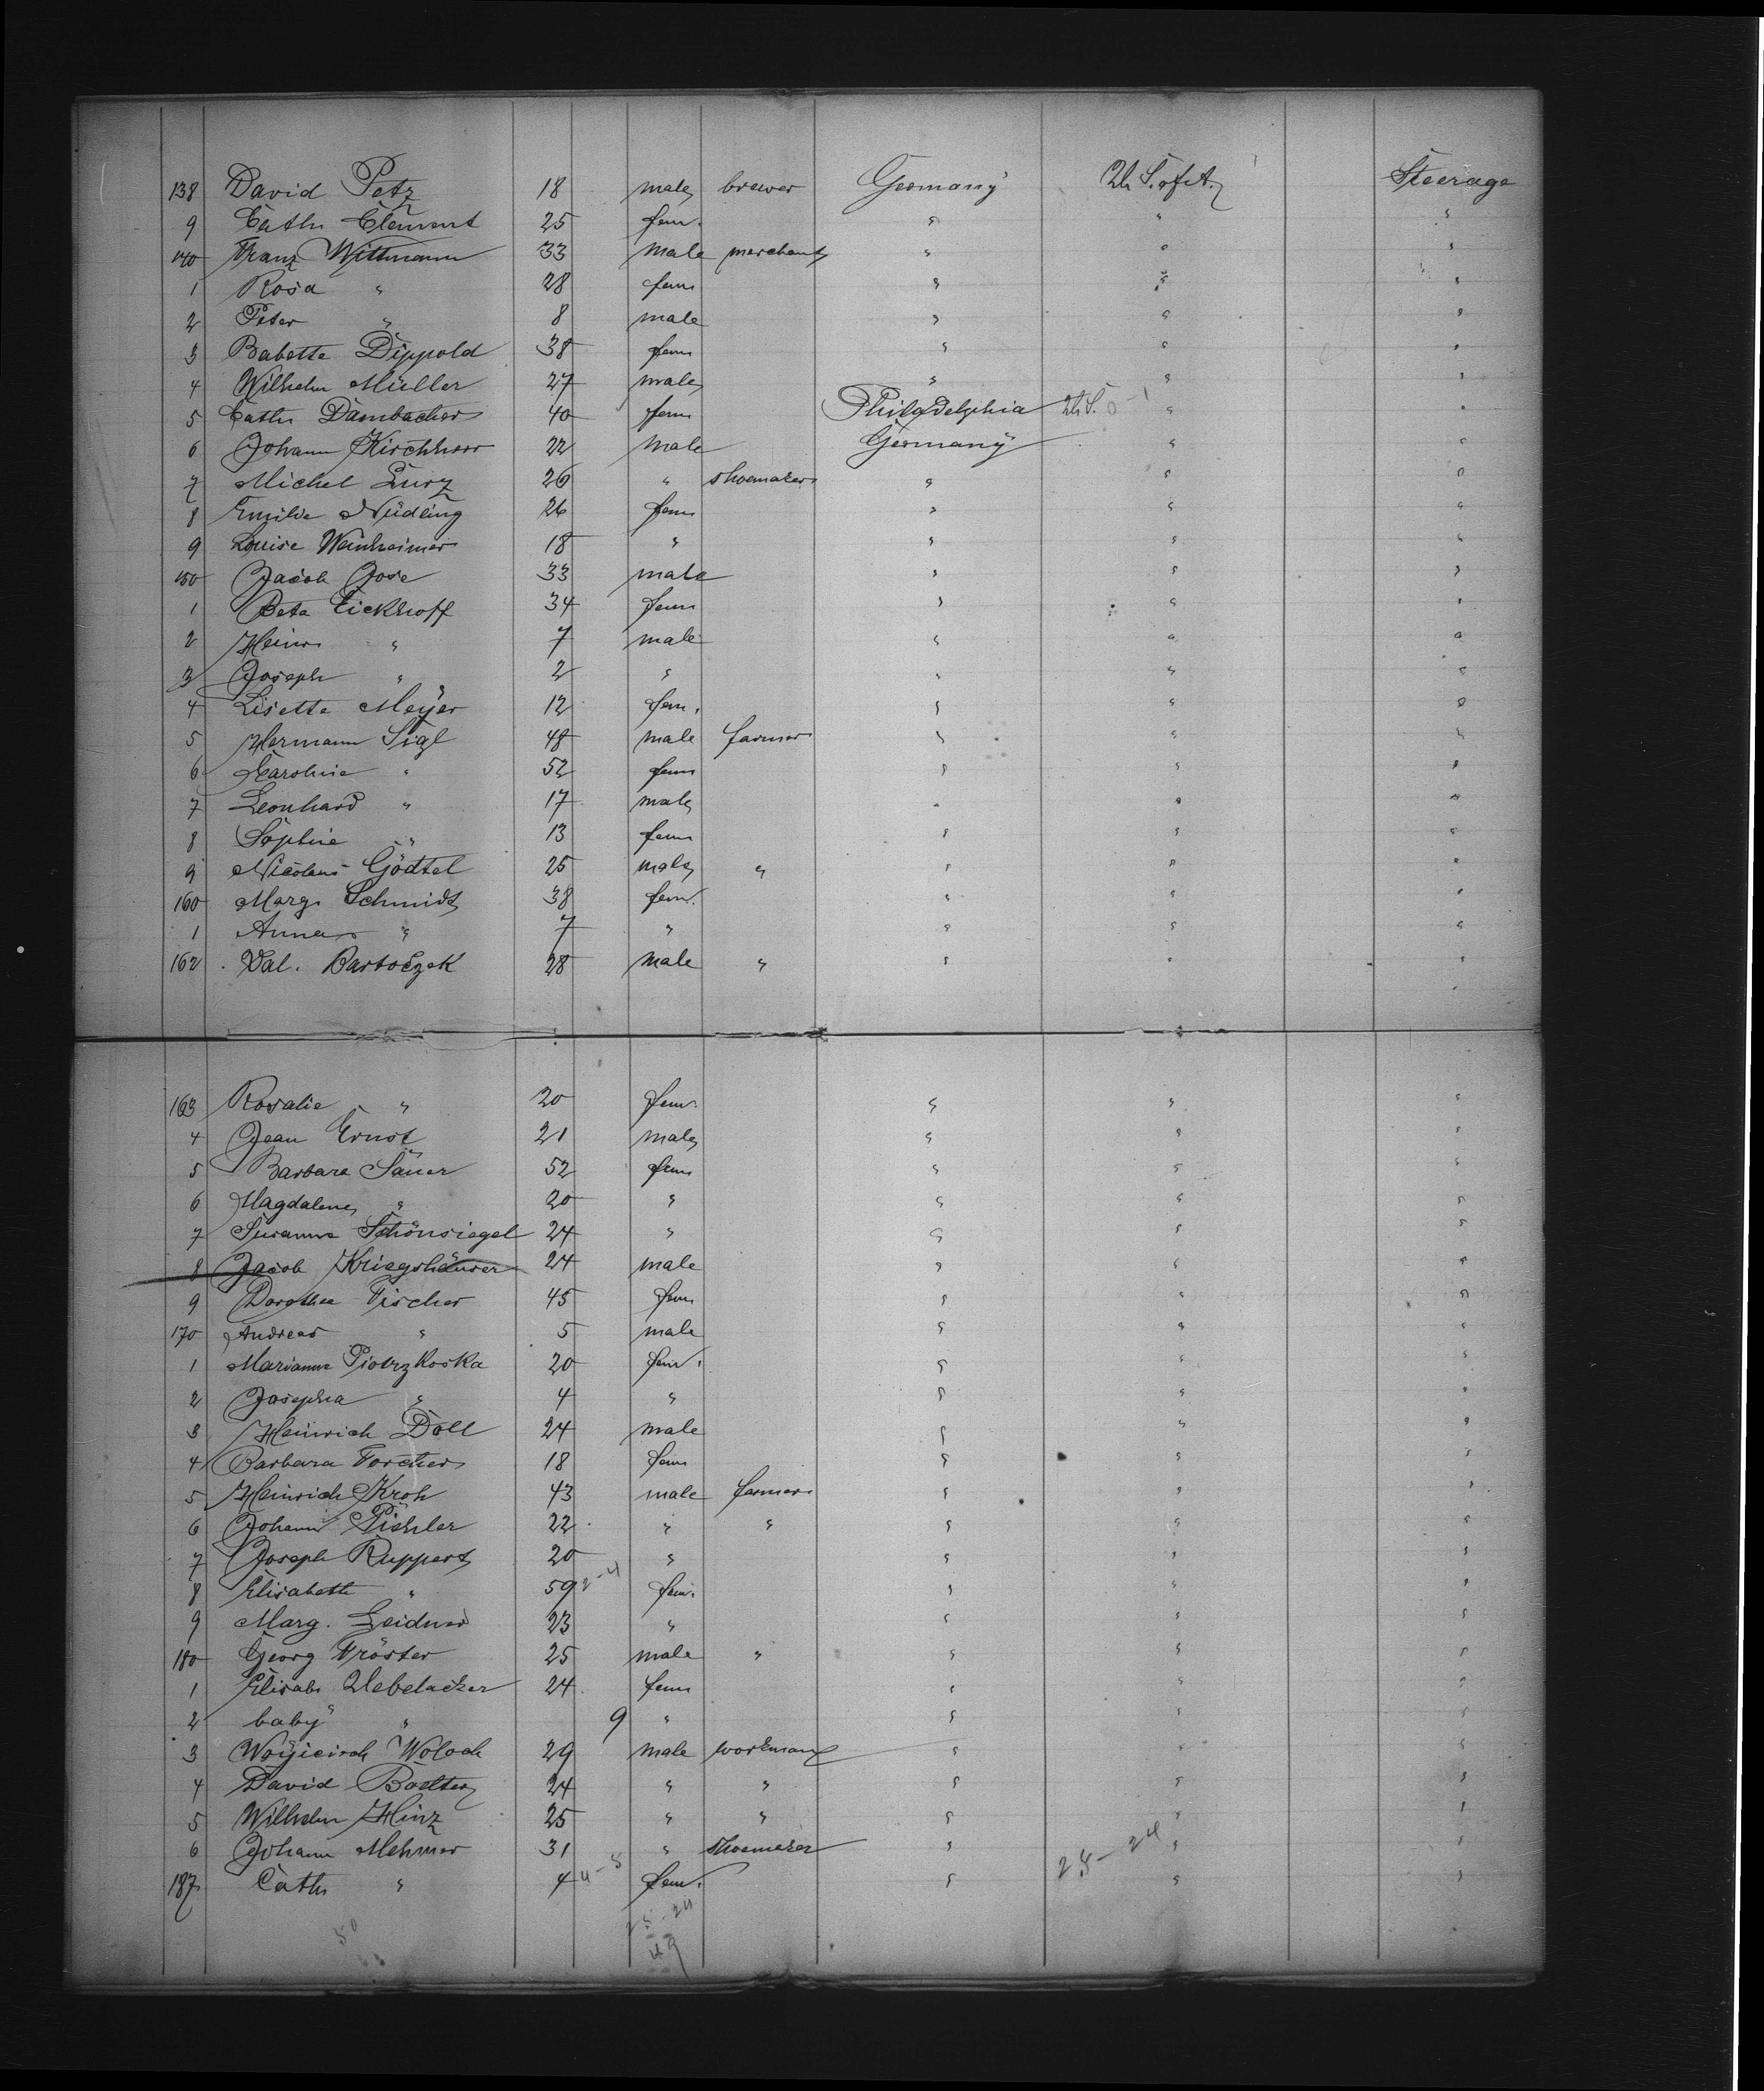 138 David Petz 18 male brewer Germany U. S. of A. Steerage
9 Cath. Clement 25 fem. " " "
140 Franz Wittmann 33 male merchant " " "
1 Rosa " 28 fem " " "
2 Peter " 8 male " " "
3 Babette Dippold 38 fem " " "
4 Wilhelm Müller 27 male " " "
5 Cath. Dambacher 40 fem Philadelphia U. S. 0-1 " "
6 Johann Kirchherr 22 male Germany " "
7 Michel Lurz 26 " shoemaker " " "
8 Emilie Nüdling 26 fem " " "
9 Louise Weinheimer 18 " " " "
150 Jacob Jose 33 male " " "
1 Beta Eickhoff 34 fem " " "
2 Heinr. " 7 male " " "
3 Joseph " 2 " " " "
4 Lisette Meÿer 12 fem. " " "
5 Hermann Sigl 48 male farmer " " "
6 Caroline " 52 fem " " "
7 Leonhard " 17 male " " "
8 Sophie " 13 fem " " "
9 Nicolaus Gödtel 25 male " " " "
160 Marg. Schmidt 38 fem. " " "
1 Anna " 7 " " " "
162 Val. Bartoczek 28 male " " " "
163 Rosalie " 20 fem. " " "
4 Jean Ernst 21 male " " "
5 Barbara Sauer 52 fem " " "
6 Magdalena " 20 " " " "
7 Susanna Schönsiegel 24 " " " "
8 Jacob Kriegshäuser 24 male " " "
9 Dorothea Fischer 45 fem " " "
170 Andreas " 5 male " " "
1 Marianna Piotrzkoska 20 fem. " " "
2 Josepha " 4 " " " "
3 Heinrich Doll 24 male " " "
4 Barbara Forcher 18 fem " " "
5 Heinrich Kroh 43 male farmer " " "
6 Johann Pichler 22 " " " " "
7 Joseph Ruppert 20 " " " "
8 Elisabeth " 59 2-4 fem. " " "
9 Marg. Leidner 23 " " " "
180 Georg Tröster 25 male " " " "
1 Elisab. Uebelacker 24 fem " " "
2 baby " 9 " " " "
3 Woÿicisch Woloch 29 male workman " " "
4 David 24 " " " " "
5 Wilhelm Hinz 25 " " " " "
6 Johann Mehmer 31 " shoemaker " 25-24 " "
187 Cath. " 4 4-5 fem. " " "
50 25-24
49